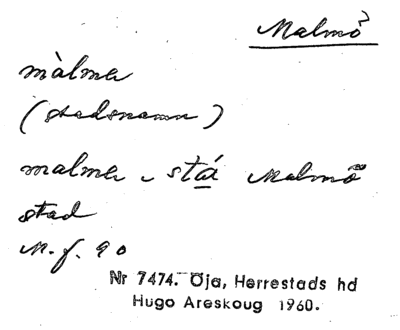 Malmö
màlmer
(stadsnamn)
malmer - stá Malmö
stad
M. f. 90
Nr 7474. Öja, Herrestads hd
Hugo Areskoug 1960.